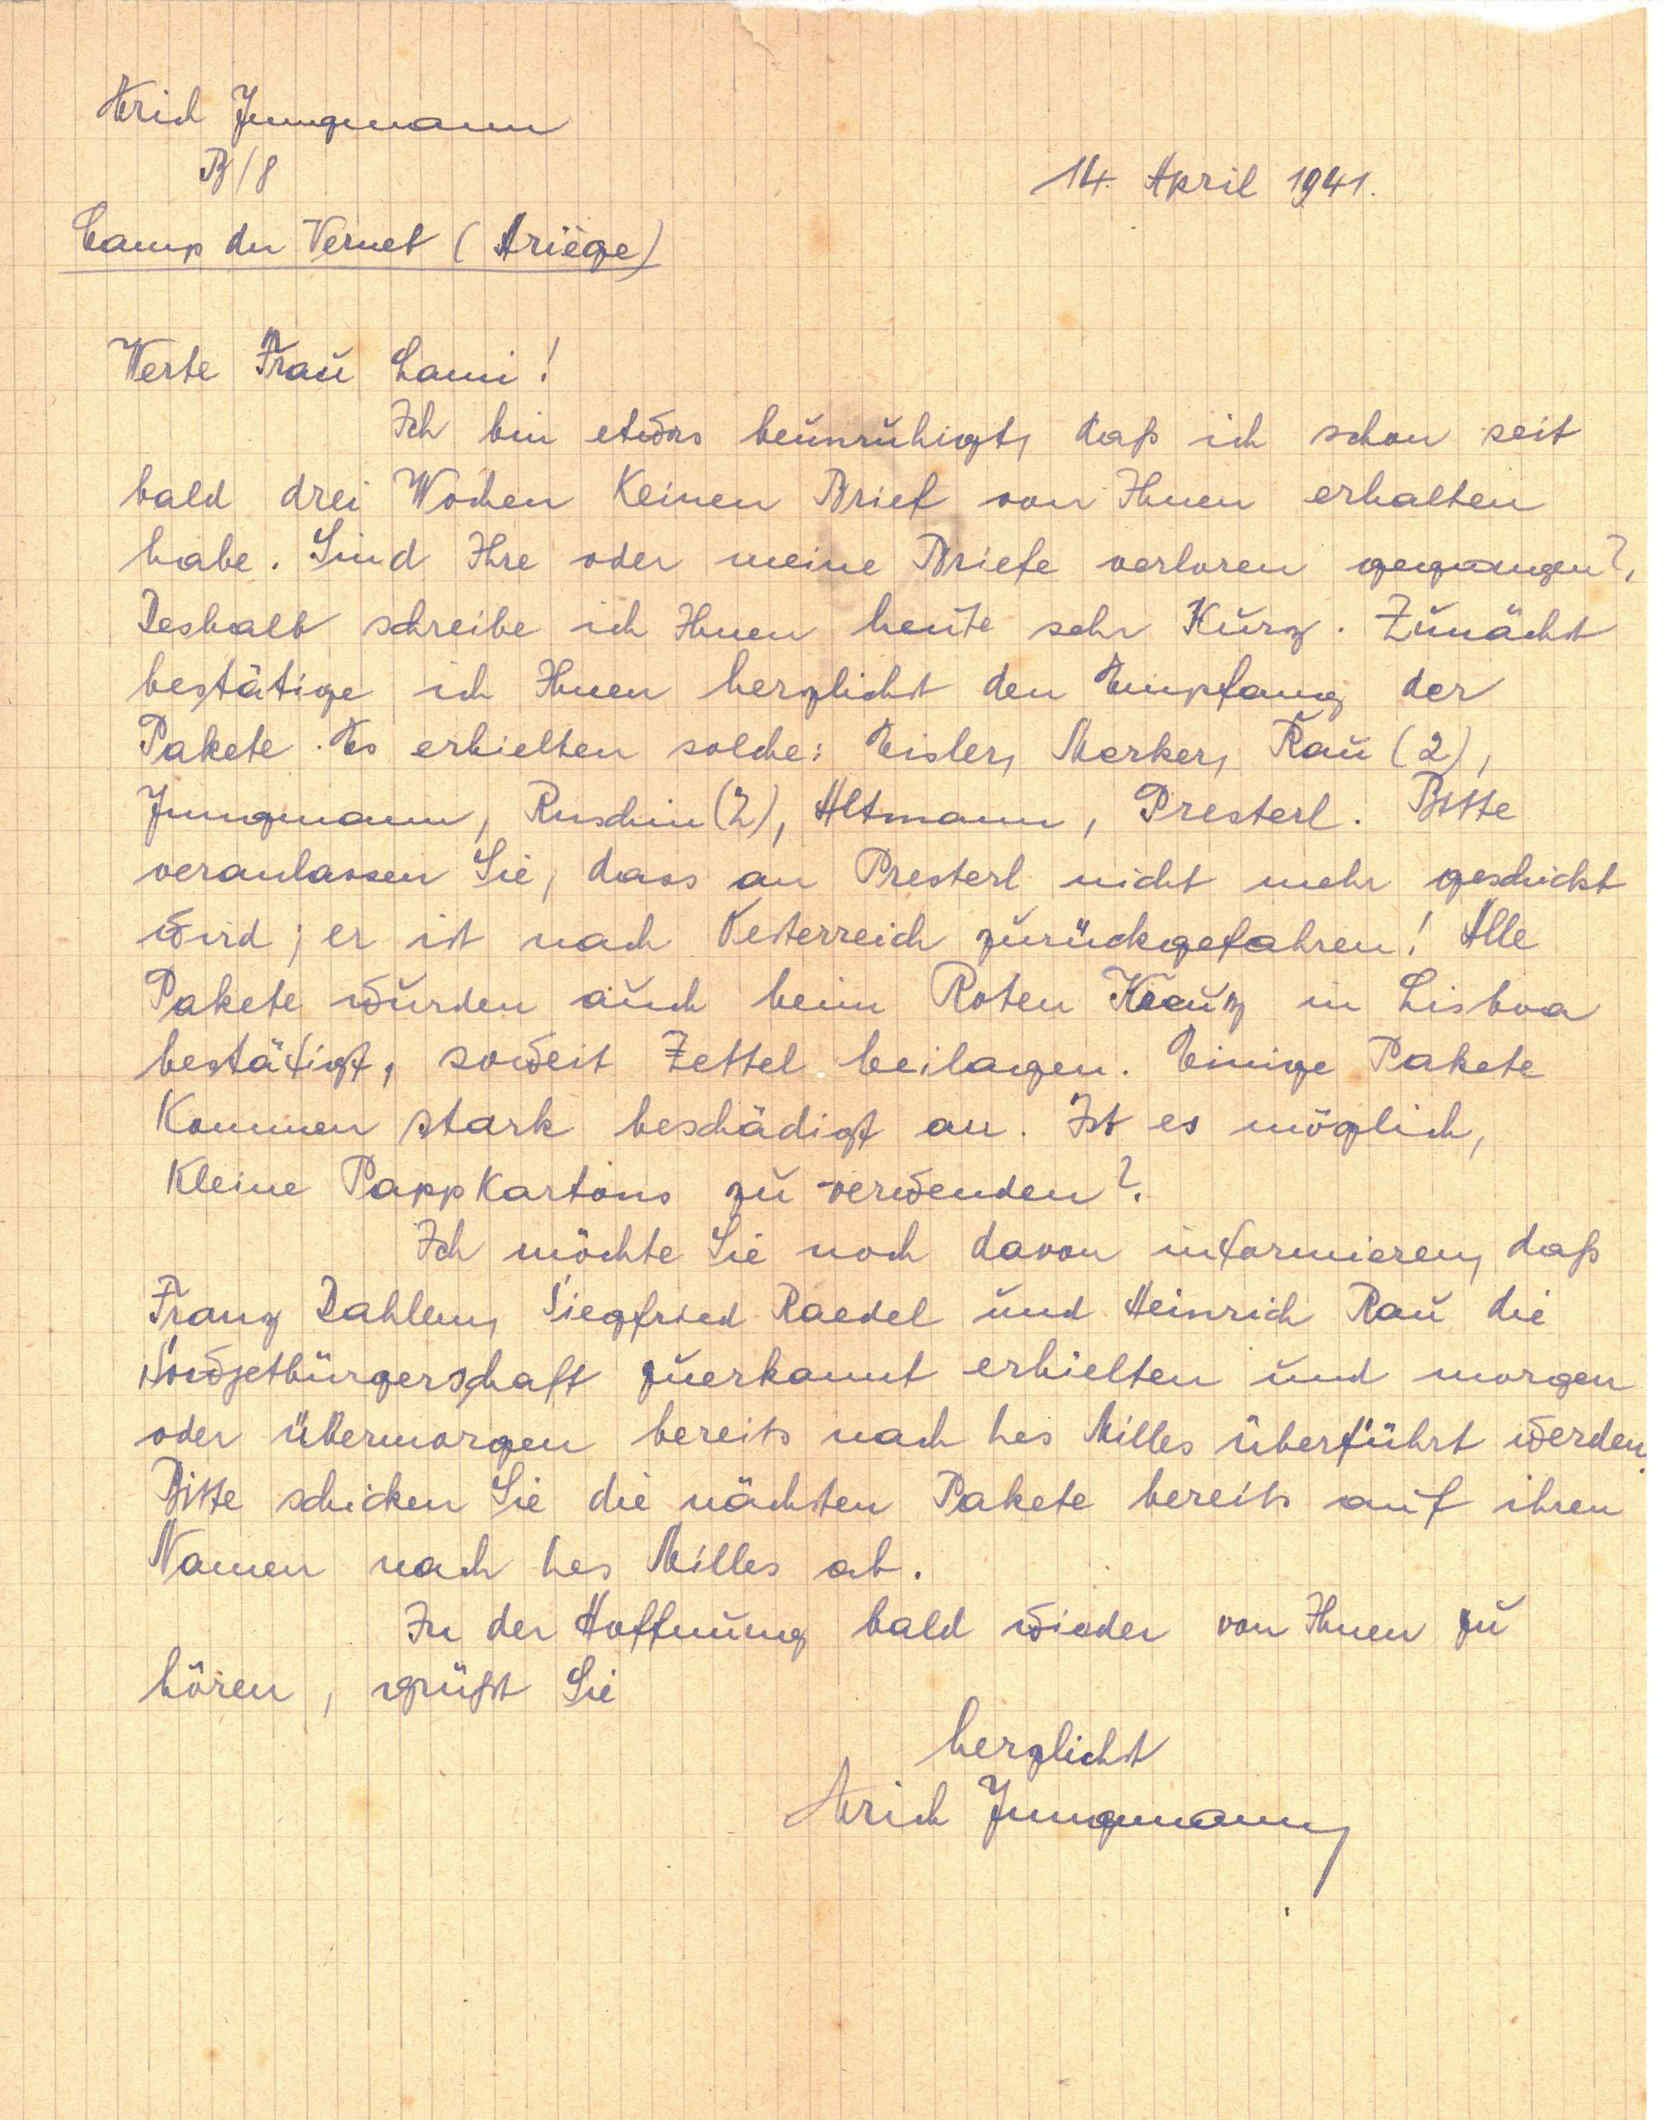 Erich Jungmann
B/8
14. April 1941.
Camp du Vernet (Ariège)
Werte Frau Lami!
Ich bin etwas beunruhigt, daß ich schon seit
bald drei Wochen keinen Brief von Ihnen erhalten
habe. Sind Ihre oder meine Briefe verloren gegangen?
Deshalb schreibe ich Ihnen heute sehr kurz. Zunächt
bestätige ich Ihnen herzlichst den Empfang der
Pakete. Es erhielten solche: Eisler, Merker, Rau (2),
Jungmann, Ruschin (2), Altmann, Presterl. Bitte
veranlassen Sie, dass an Presterl nicht mehr geschickt
wird; er ist nach Oesterreich zurückgefahren! Alle
Pakete wurden auch beim Roten Kreuz in Lisboa
bestätigt, soweit Zettel beilagen. Einige Pakete
kommen stark beschädigt an. Ist es möglich,
kleine Pappkartons zu verwenden?
Ich möchte Sie noch davon informieren, daß
Franz Dahlem, Siegfried Raedel und Heinrich Rau die
Sowjetbürgerschaft zuerkannt erhielten und morgen
oder übermorgen bereits nach Les Milles überführt werden.
Bitte schicken Sie die nächsten Pakete bereits auf ihren
Namen nach Les Milles ab.
In der Hoffnung bald wieder von Ihnen zu
hören, grüßt Sie
herzlichst
Erich Jungmann